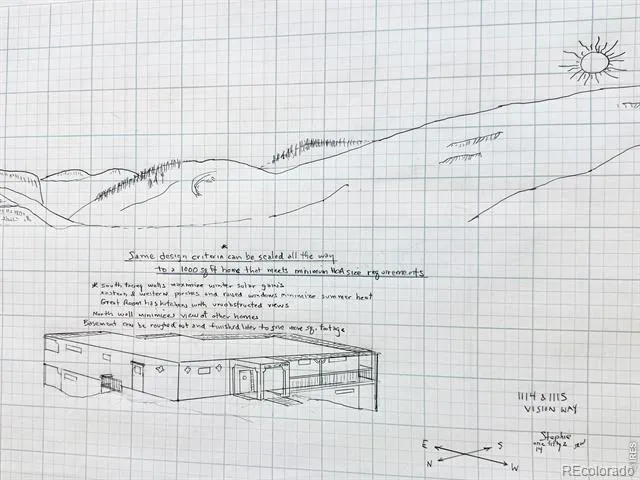 *
Same design criteria can be scaled all the way
to a 1000 sq ft home that meets minimum HOA size requirements
* South facing walls maximize winter solar gains
eastern & western porches and raised windows minimize summer heat
Great Room has kitchens with unobstructed views
North wall minimizes view of other homes
Basement can be roughed out and finished later to give more sq. footage
1114 & 1115
VISION WAY
E S
N W
IRES
REcolorado